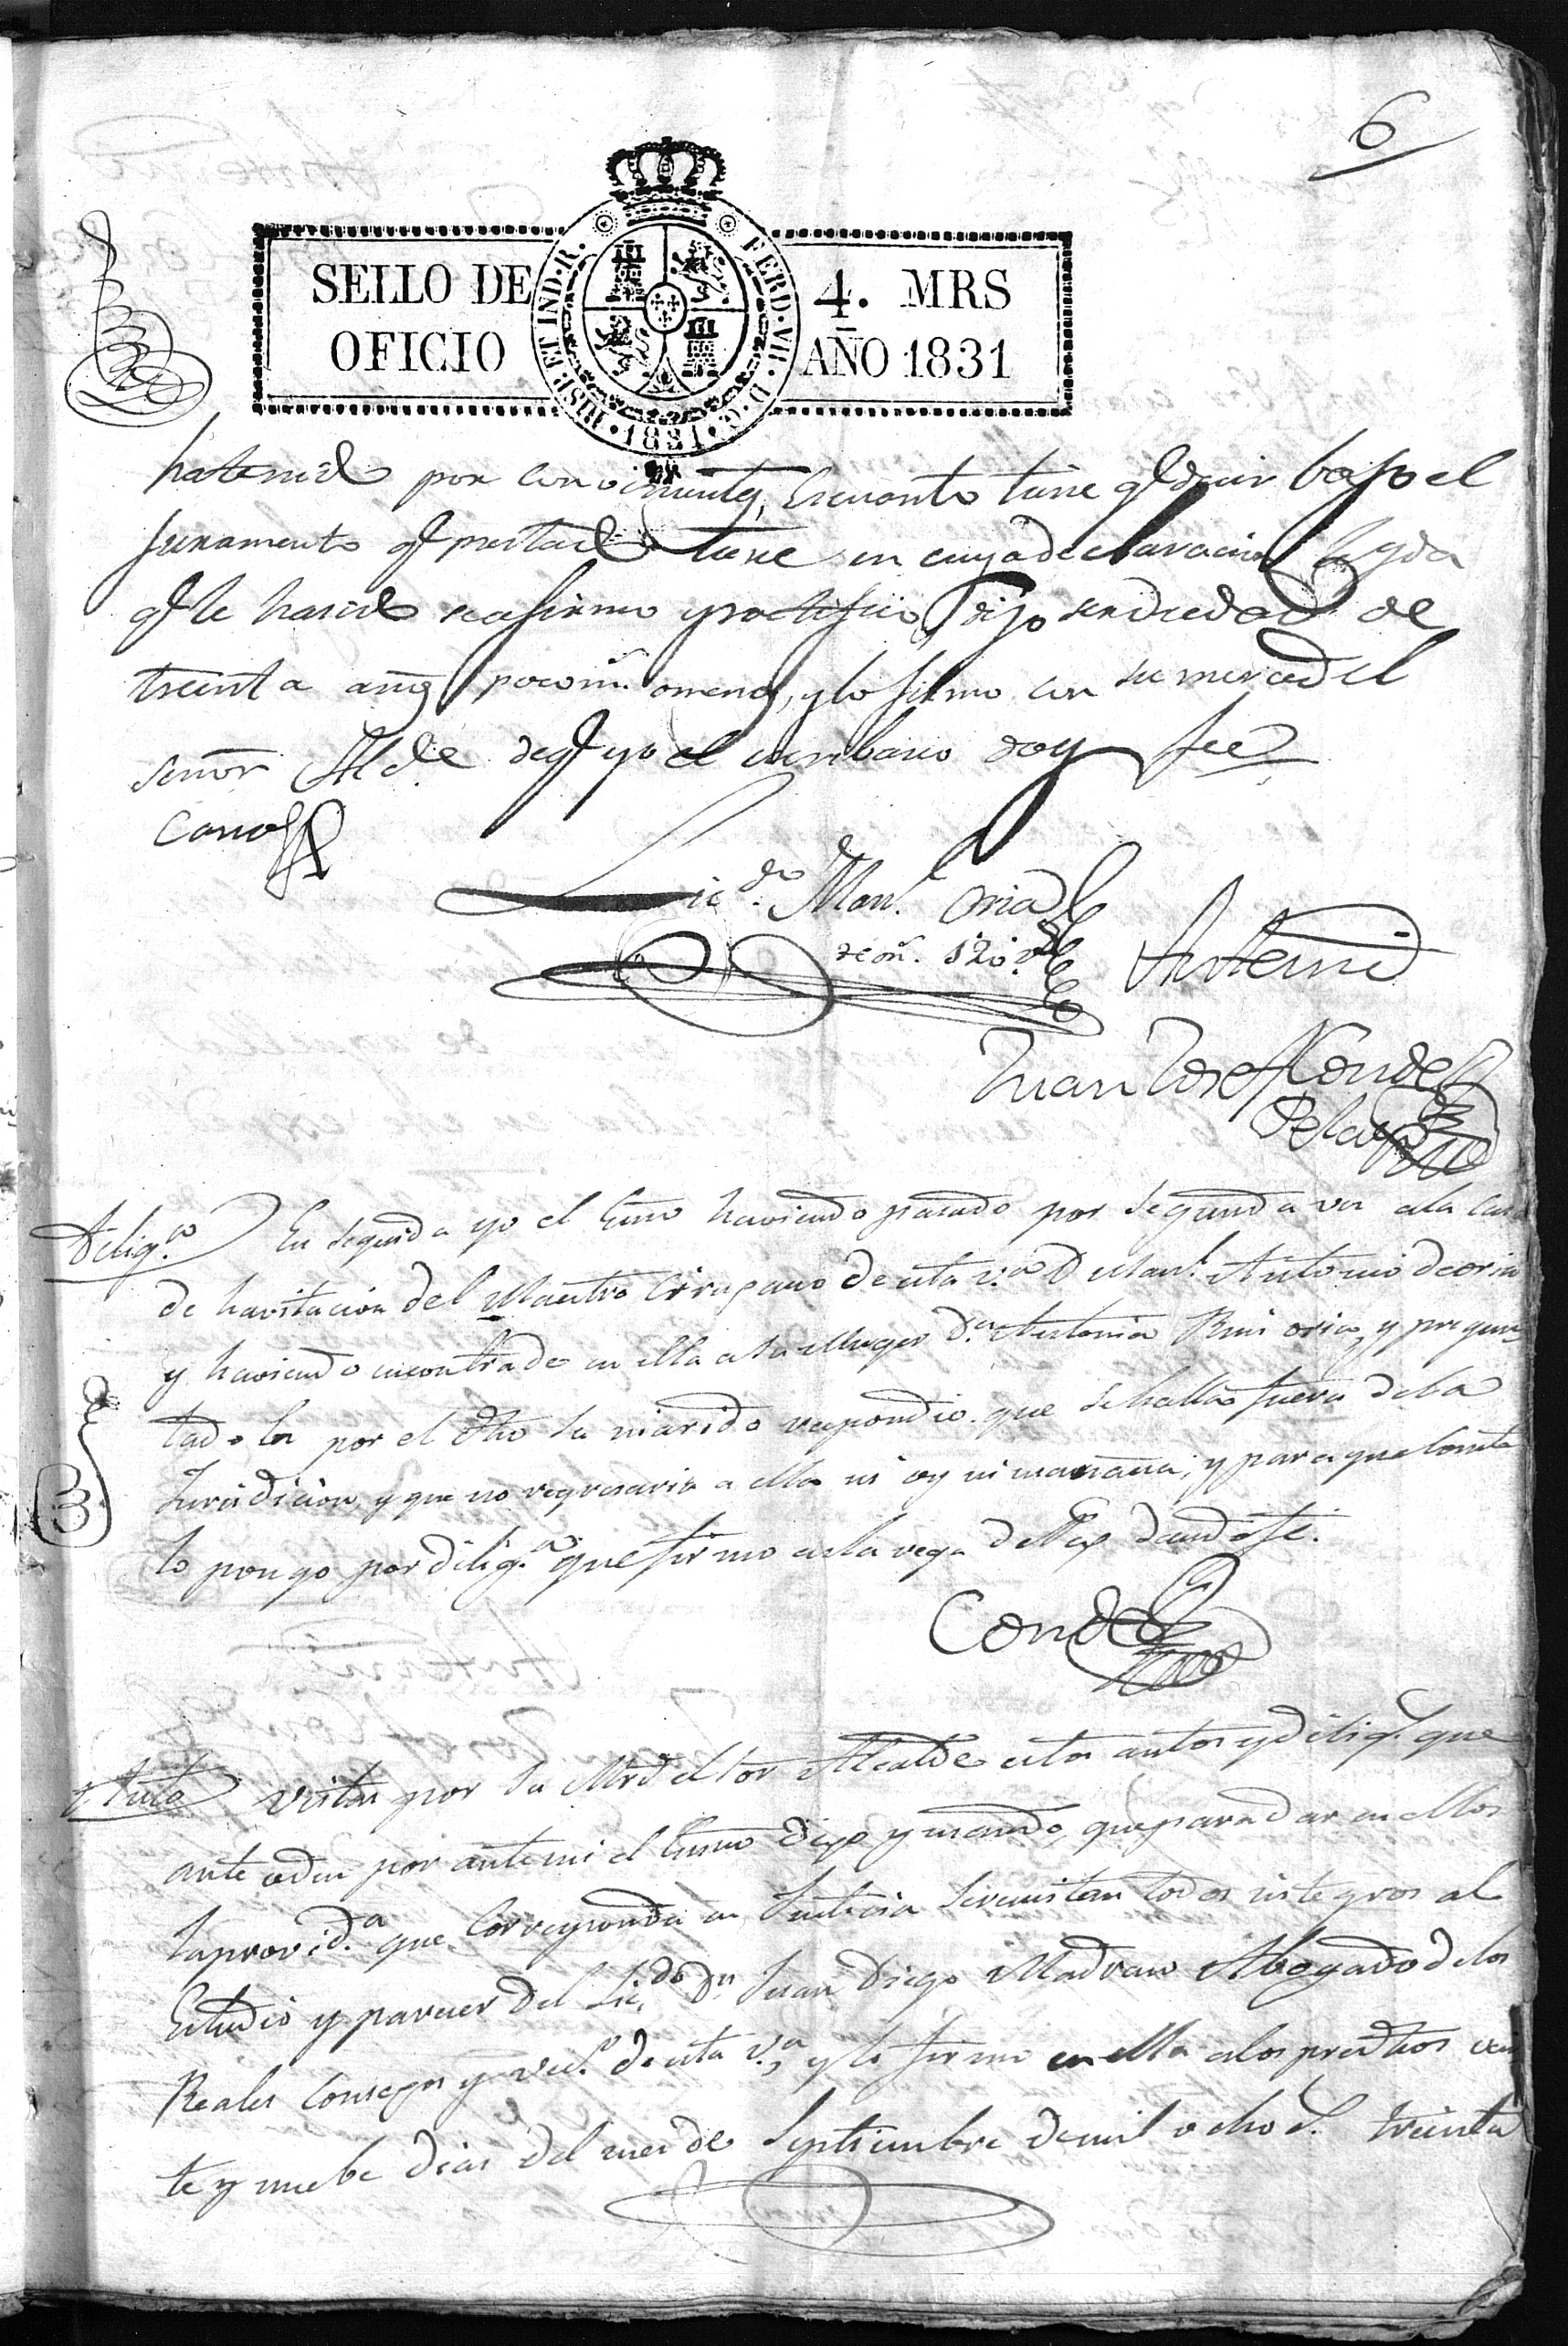 6
SELLO DE OFICIO 4. MRS AÑO 1831
HISP. ET IND. R. FERD. VII. D. G. 1831
ha tenido por conocimiento, es cuanto tiene q.e decir bajo el
juramento q.e prestado tiene en cuya declaracion leyda
q.e le ha sido se afirmo y ratifico, dijo ser de edad de
treinta años poco m.s o menos, y lo firmo con su merced el
señor Alc.de de q.e yo el escribano doy fee
Cano
Lic.do Man.l Oria
Antemi
Juan Josef Conde
Dilig.a En seguida yo el Essno haviendo pasado por segunda vez ala casa
de havitacion del Maestro Cirujano de esta v.a D Man.l Antonio de oria
y haviendo encontrado en ella a su Muger D.a Antonia Ruiz oria, y pregun
tadola por el dho su marido respondio que se halla fuera dela
Jurisdicion, y que no regresaria a ella ni oy ni mañana, y para que conste
lo pongo por dilig.a que firmo en la vega de Pas dando fe.
Conde
Auto Vistos por su Mrd el Sor Alcalde estos autos y dilig.s que
anteceden por antemi el Essno dijo y mando, que para dar en ellos
la provid.a que corresponda en Justicia se remitan todos integros al
Estudio y parecer del Lic.do D.n Juan Diego Madrazo Abogado delos
Reales Consejos y vec.o de esta v.a y lo firmo en ella alos predhos vein
te y nuebe dias del mes de Septiembre de mil ocho c.s treinta